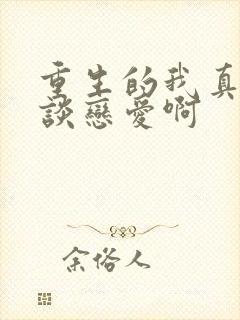 重生的我真
談戀愛啊
余俗人